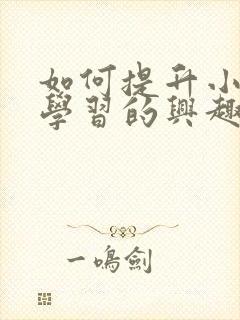 如何提升小
學習的興趣
一鳴劍